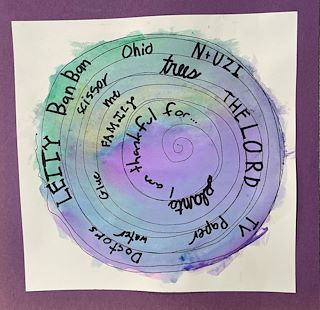 I am thankful for...
plants
FAMILY
me
trees
THE LORD
Paper
water
Glue
scissor
Ohio
N+UZI
TV
Doctors
BanBan